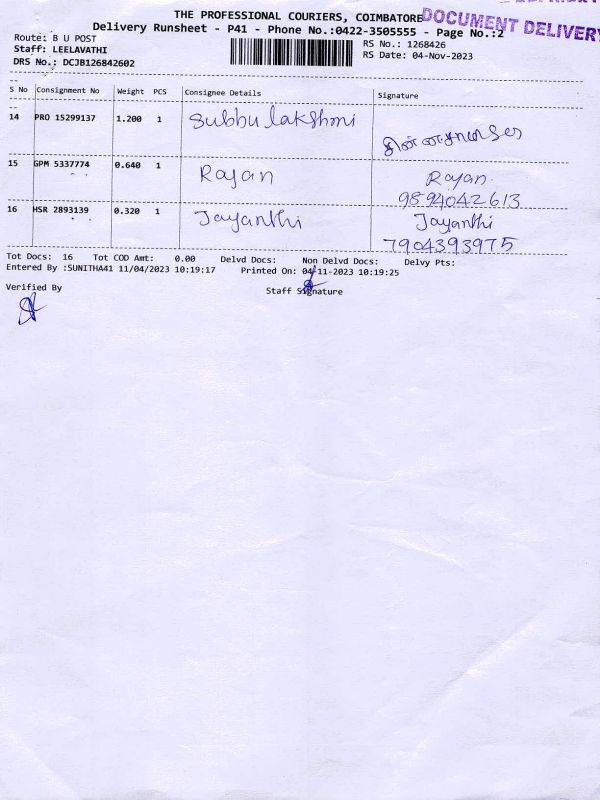 THE PROFESSIONAL COURIERS, COIMBATORE
DOCUMENT DELIVERY
Delivery Runsheet - P41 - Phone No.:0422-3505555 - Page No.:2
Route: B U POST
RS No.: 1268426
Staff: LEELAVATHI
RS Date: 04-Nov-2023
DRS No.: DCJB126842602
S No Consignment No Weight PCS Consignee Details Signature
14 PRO 15299137 1.200 1 Subbu lakshmi
15 GPM 5337774 0.640 1 Rajan Rajan
9894042613
16 HSR 2893139 0.320 1 Jayanthi Jayanthi
7904393975
Tot Docs: 16 Tot COD Amt: 0.00 Delvd Docs: Non Delvd Docs: Delvy Pts:
Entered By :SUNITHA41 11/04/2023 10:19:17 Printed On: 04-11-2023 10:19:25
Verified By
Staff Signature